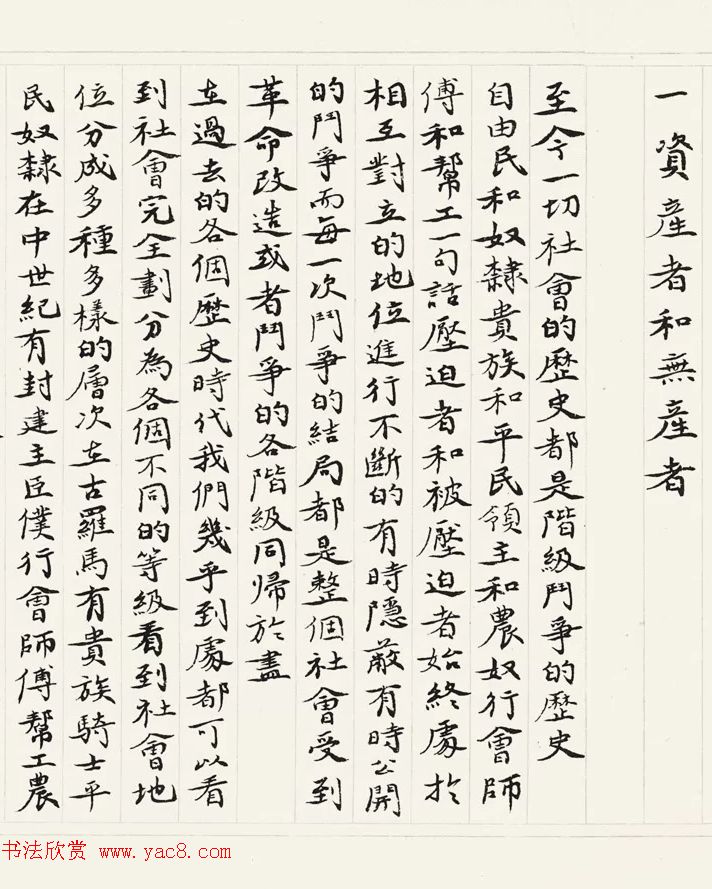 一資産者和無産者
至今一切社會的歷史都是階級鬥爭的歷史
自由民和奴隸貴族和平民領主和農奴行會師
傅和幫工一句話壓迫者和被壓迫者始終處於
相互對立的地位進行不斷的有時隱蔽有時公開
的鬥爭而每一次鬥爭的結局都是整個社會受到
革命改造或者鬥爭的各階級同歸於盡
在過去的各個歷史時代我們幾乎到處都可以看
到社會完全劃分為各個不同的等級看到社會地
位分成多種多樣的層次在古羅馬有貴族騎士平
民奴隸在中世紀有封建主臣僕行會師傅幫工農
书法欣赏 www.yac8.com